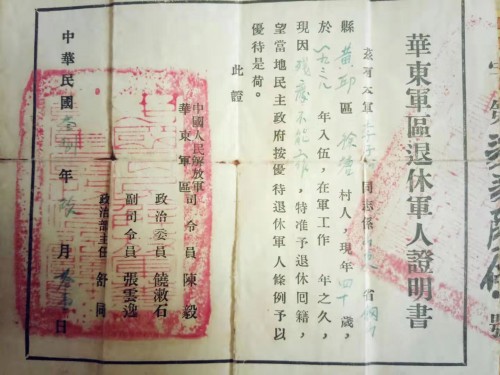 號
華東軍區退休軍人證明書
茲有 同志係 省
縣黃邱區 村人，現年四十歲，
於一九三九年入伍，在軍工作 年之久，
現因殘廢不能 ，特准予退休囘籍，
望當地民主政府按優待退休軍人條例予以
優待是荷。
此證
中國人民解放軍
華東軍區
司令員 陳毅
政治委員 饒漱石
副司令員 張雲逸
政治部主任 舒同
中華民國 年 月 日